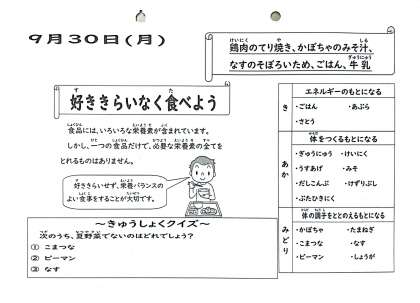 9月30日(月)
鶏肉のてり焼き、かぼちゃのみそ汁、
なすのそぼろいため、ごはん、牛乳
好ききらいなく食べよう
食品には、いろいろな栄養素が含まれています。
しかし、一つの食品だけで、必要な栄養素の全てを
とれるものはありません。
好ききらいせず、栄養バランスの
よい食事をすることが大切です。
～きゅうしょくクイズ～
次のうち、夏野菜でないのはどれでしょう？
① こまつな
② ピーマン
③ なす
き
エネルギーのもとになる
・ごはん ・あぶら
・さとう
あか
体をつくるもとになる
・ぎゅうにゅう ・けいにく
・うすあげ ・みそ
・だしこんぶ ・けずりぶし
・ぶたひきにく
みどり
体の調子をととのえるもとになる
・かぼちゃ ・たまねぎ
・こまつな ・なす
・ピーマン ・しょうが